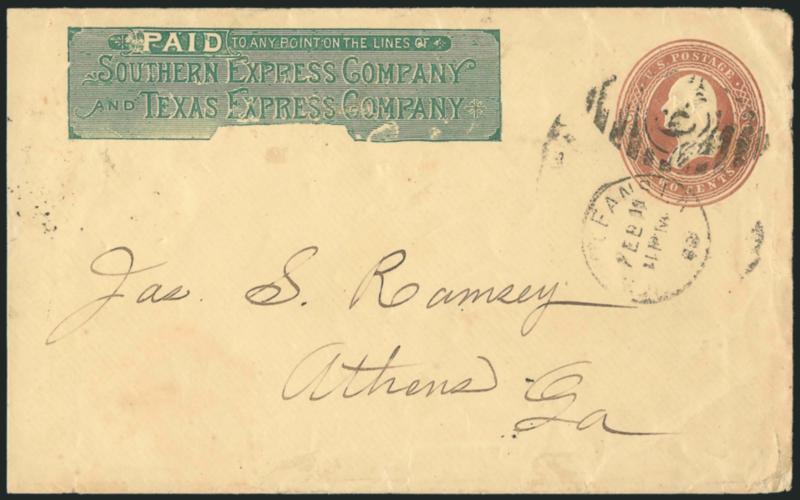 PAID TO ANY POINT ON THE LINES OF
SOUTHERN EXPRESS COMPANY
AND TEXAS EXPRESS COMPANY
U.S. POSTAGE
CENTS
FEB 19
Jas. S. Ramsey
Athens
Ga